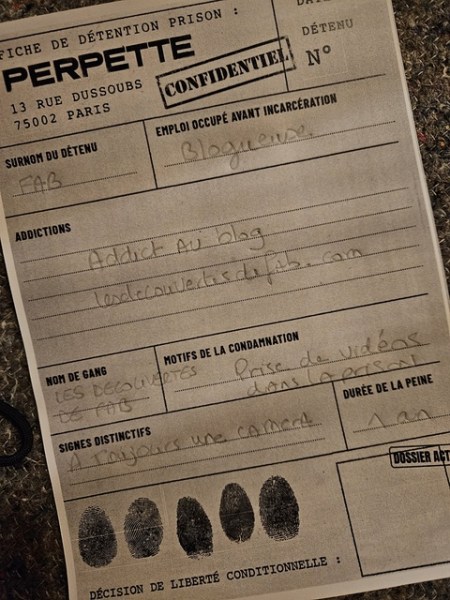 FICHE DE DÉTENTION PRISON :
PERPETTE
13 RUE DUSSOUBS
75002 PARIS
CONFIDENTIEL
DÉTENU
N°
SURNOM DU DÉTENU
FAB
EMPLOI OCCUPÉ AVANT INCARCÉRATION
Blogueuse
ADDICTIONS
Addict au blog
lesdecouvertesdefab.com
NOM DE GANG
LES DECOUVERTES
DE FAB
MOTIFS DE LA CONDAMNATION
Prise de vidéos
dans la prison
SIGNES DISTINCTIFS
A toujours une camera
DURÉE DE LA PEINE
1 an
DOSSIER ACT
DÉCISION DE LIBERTÉ CONDITIONNELLE :